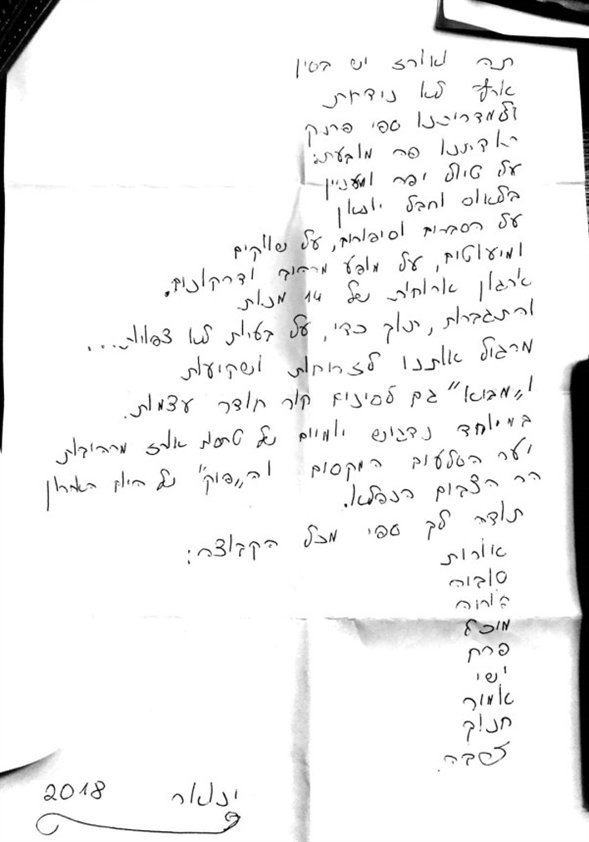 תה ואורז יש בסין
אף לא נידחת
ולמדריכנו ספי פרנק
ראדיתנו פה מובעת:
על טיול יפה ומעניין
בלאוס וחבל יונאן
על הסברים וסיפורים, על שווקים
ומיעוטים, על מופע מרהיב ודרקונים.
ארגון ארוחות של 14 מנות
והתגברות, תוך כדי, על בעיות לא צפויות...
מרגול אותנו לזריחות ושקיעות
ו"מבוא" גם לסינים קור חודר עצמות.
במיוחד נדגיש יומיים של טרסות אורז מרהיבות
יער הסלעים המקסים וה"פוק" של היום האחרון
הר הצבעים הנפלא.
תודה לך ספי מכל הקבוצה:
אורות
סובוה
מוכל
פרח
ישי
אמור
חנוך
צבה.
ינואר 2018